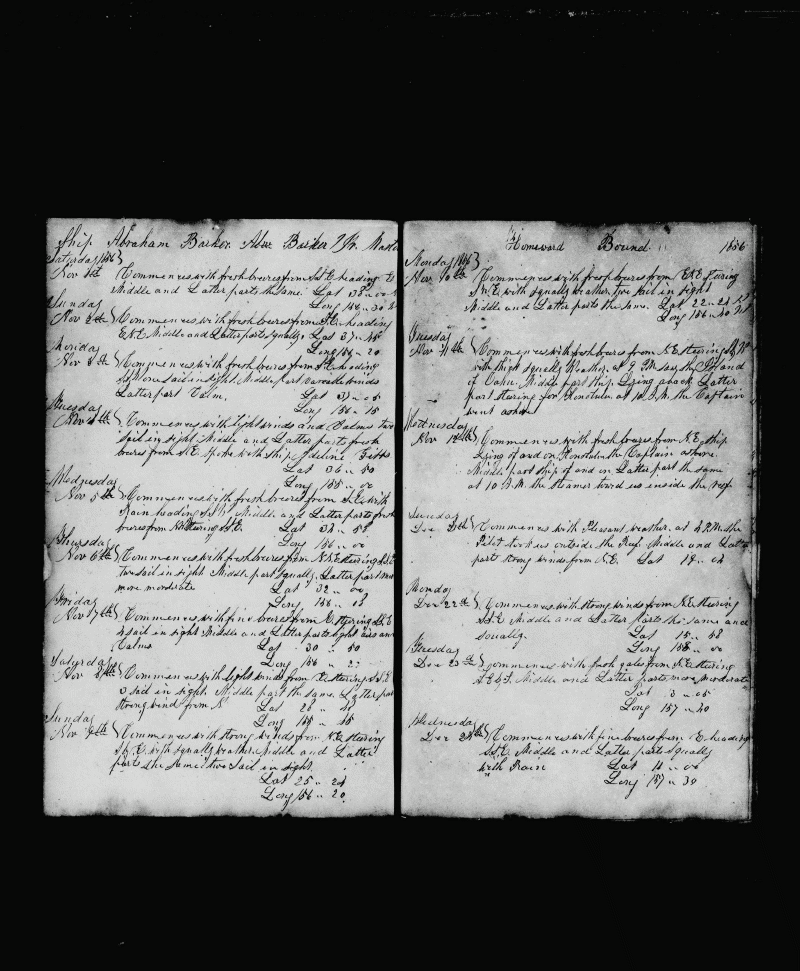 Ship Abraham Barker. Abm Barker Jr. Master
Saturday
Nov 1st Commences with fresh breezes from heading
Middle and Latter parts the same. Lat 38 " 00
Long
Sunday
Nov 2nd Commences with fresh breezes from heading
ENE Middle and Latter parts squally. Lat 37 " 45
Long 156 " 20
Monday
Nov 3rd Commences with fresh breezes from heading
sail in sight. Middle part winds
Latter part Calm. Lat 37 " 05
Long 156 " 15
Tuesday
Nov 4th Commences with light winds and Calms two
sail in sight Middle and Latter parts fresh
breezes from S.E. Spoke with Ship Adeline Gibbs
Lat 36 " 50
Long 155 " 00
Wednesday
Nov 5th Commences with fresh breezes from with
Rain heading Middle and Latter parts fresh
breezes from steering Lat 58
Long 156 " 00
Thursday
Nov 6th Commences with fresh breezes from N.N.E. steering
two sail in sight Middle part squally. Latter part
more moderate Lat 32 " 00
Long
Friday
Nov 7th Commences with fine breezes from steering
4 sail in sight Middle and Latter parts light airs and
Calms Lat 30 " 50
Long 156
Saturday
Nov 8th Commences with light winds from steering
3 sail in sight. Middle part the same. Latter part
strong winds from N. Lat 28
Long
Sunday
Nov 9th Commences with strong winds from N.E. steering
with squally weather. Middle and Latter
parts the same two sail in sight
Lat 25 " 24
Long 156 " 20
Homeward Bound. 1856
Monday
Nov 10th Commences with fresh breezes from ENE
with squally weather two sail in sight
Middle and Latter parts the same. Lat 22 " 24
Long 156 " 40
Tuesday
Nov 11th Commences with fresh breezes from N.E. steering
with thick squally Weather. at saw the Island
of Oahu. Middle part ship Lying aback Latter
part steering for Honolulu at 10 the Captain
went ashore
Wednesday
Nov 12th Commences with fresh breezes from N.E. ship
Lying of and on Honolulu the Captain ashore.
Middle part ship of and on Latter part the same
at 10 the Steamer towed us inside the reef
Sunday
Dec Commences with Pleasant weather. at 4 P.M. the
Pilot took us outside the Reef Middle and Latter
parts strong winds from N.E. Lat 19 " 04
Monday
Dec 22nd Commences with strong winds from N.E. steering
Middle and Latter Parts the same and
squally. Lat 15 " 58
Long 158 " 00
Tuesday
Dec 23rd Commences with fresh gales from N.E. steering
Middle and Latter parts more moderate
Lat
Long 157 " 40
Wednesday
Dec 24th Commences with fine breezes from E. heading
Middle and Latter parts squally
with Rain Lat
Long 157 " 30